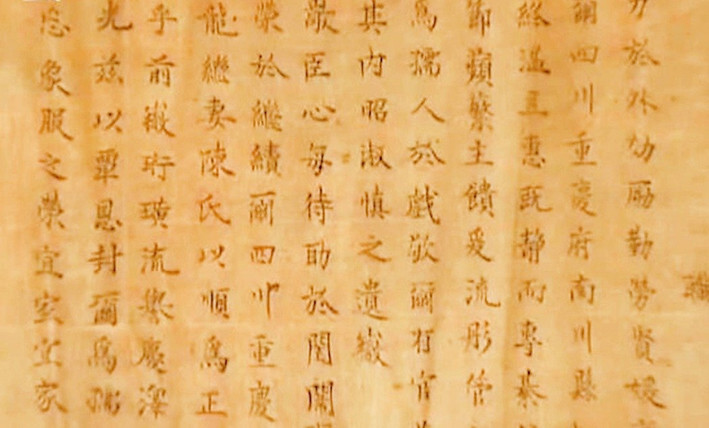 力於外劬勵勤勞賢媛
爾四川重慶府南川縣
終溫且惠既靜而專綦
節蘋蘩主饋爰流彤管
為孺人於戲敬爾有官
其內昭淑慎之遺徽
敬臣心每待助於閨闈
榮於繼續爾四川重慶
龍繼妻陳氏以順為正
乎前徽珩璜流譽慶澤
光茲以覃恩封爾為孺
象服之榮宜室宜家